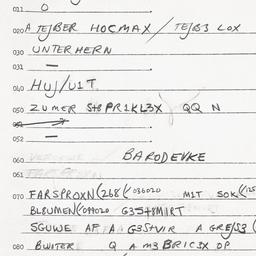 011 O
020 A TEJBER HOCMAX / TEJB3 LOX
030 UNTERHERN
031 —
040 HUJ/U1T
050 ZUMER S+8PR1KL3X QQ N
052 —
060 BARODEVKE
061
070 FARSPROXN (268 (036020 M1T SOK (125
BL8UMEN (044020 G3S+8M1RT
SGUWE AP A G3S+V1R A GREJS3 (
080 BWITER Q A M3BRICSX OP